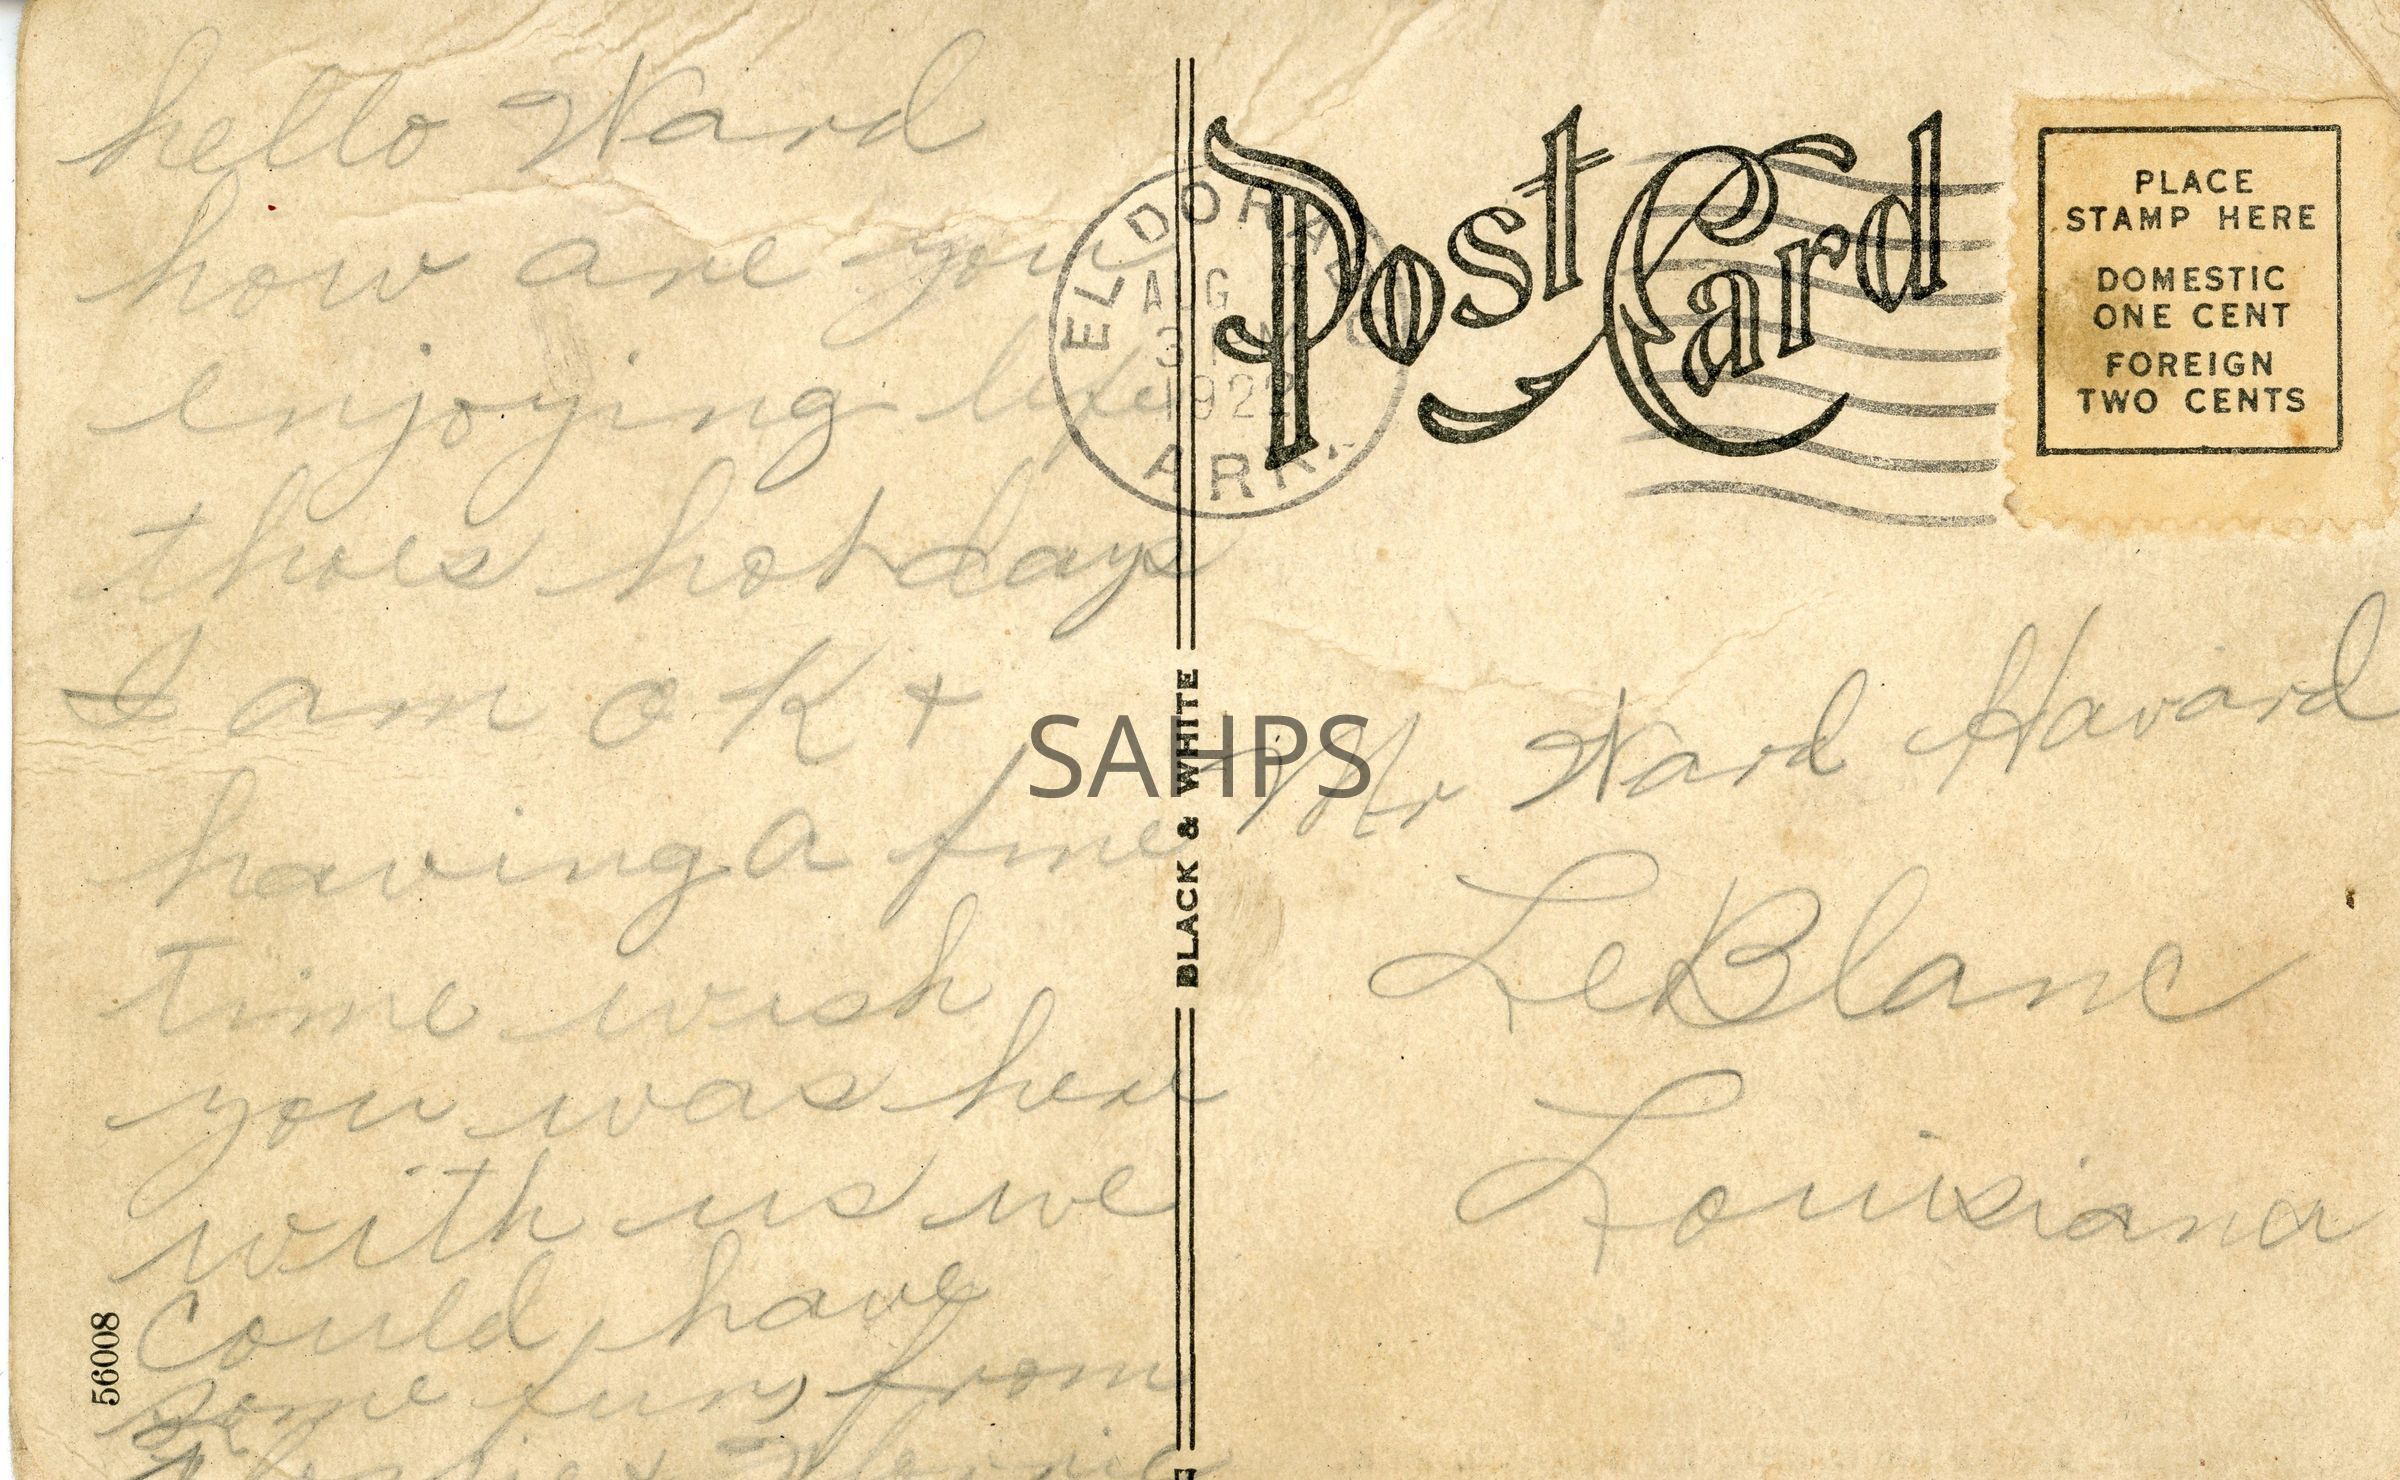 hello Ward
how are you
enjoying life
thoes hot days
I am O K +
having a fine
time wish
you was here
with us we
could have
some fun, from
56008
BLACK & WHITE
Post Card
EL DORADO
AUG
3 PM
1922
ARK.
PLACE
STAMP HERE
DOMESTIC
ONE CENT
FOREIGN
TWO CENTS
SAHPS
Mr Ward Havard
LeBlanc
Louisiana